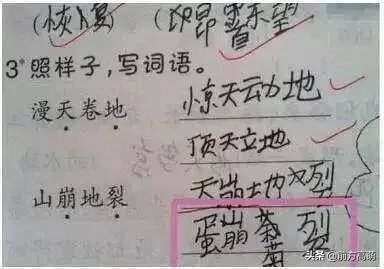 (恢复) (昂首东望)
3*照样子,写词语。
漫天卷地 惊天动地
顶天立地
山崩地裂 天崩地裂
蛋崩菊裂
头条 @前方高萌